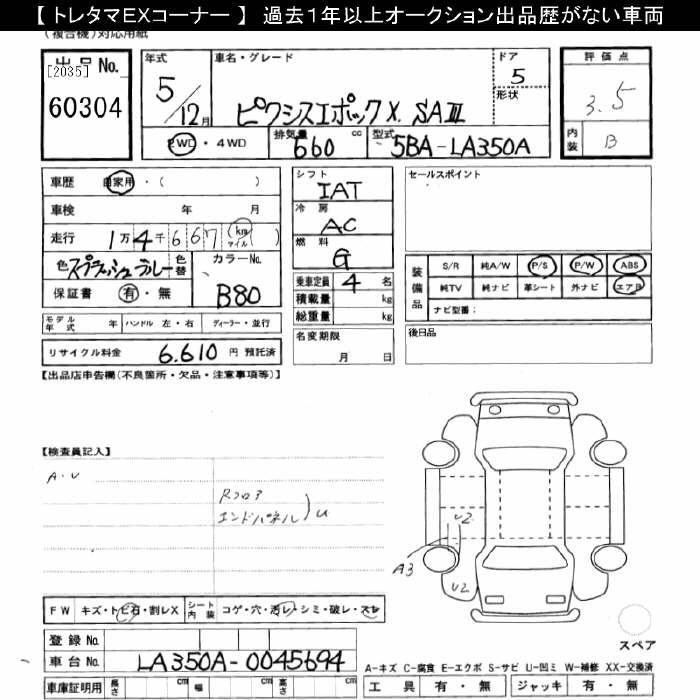 【 トレタマEXコーナー 】 過去1年以上オークション出品歴がない車両
(複合機)対応用紙
出品No.
[2035]
60304
年式
5/12月
車名・グレード
ピクシスエポック X. SAⅢ
ドア
5
形状
2WD・4WD
排気量
660 cc
型式
5BA-LA350A
評価点
3.5
内装
B
車歴 自家用・( )
車検 年 月
走行 1万4千667 (km マイル)( )
色 スプラッシュブルー 色替
カラーNo.
B80
保証書 有・無
モデル年式 年 ハンドル 左・右 ディーラー・並行
リサイクル料金 6.610 円 預託済
シフト
IAT
冷房
AC
燃料
G
乗車定員 4 名
積載量 kg
総重量 kg
名変期限
月 日
セールスポイント
装備品
S/R 純A/W P/S P/W ABS
純TV 純ナビ 革シート 外ナビ エアB
ナビ型番:
後日品
【出品店申告欄(不良箇所・欠品・注意事項等)】
【検査員記入】
A・U
Rフロア
エンドパネル
U
U2
A3
U2
FW キズ・トビ石・割レX シート内装 コゲ・穴・汚レ・シミ・破レ・スレ
登録No.
車台No. LA350A-0045694
車庫証明用 長さ cm 幅 cm 高さ cm
スペア
A-キズ C-腐食 E-エクボ S-サビ U-凹ミ W-補修 XX-交換済
工具 有・無 ジャッキ 有・無